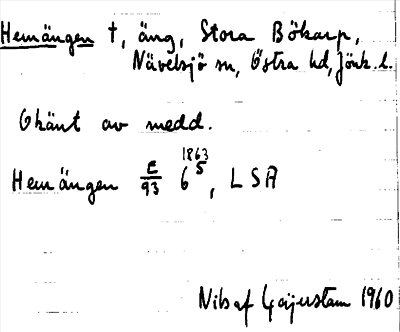 Hemängen †, äng, Stora Bökarp,
Nävelsjö sn, Östra hd, Jönk. l.
Okänt av medd.
1863
Hemängen E/93 6 5, LSA
Nils af Geijerstam 1960